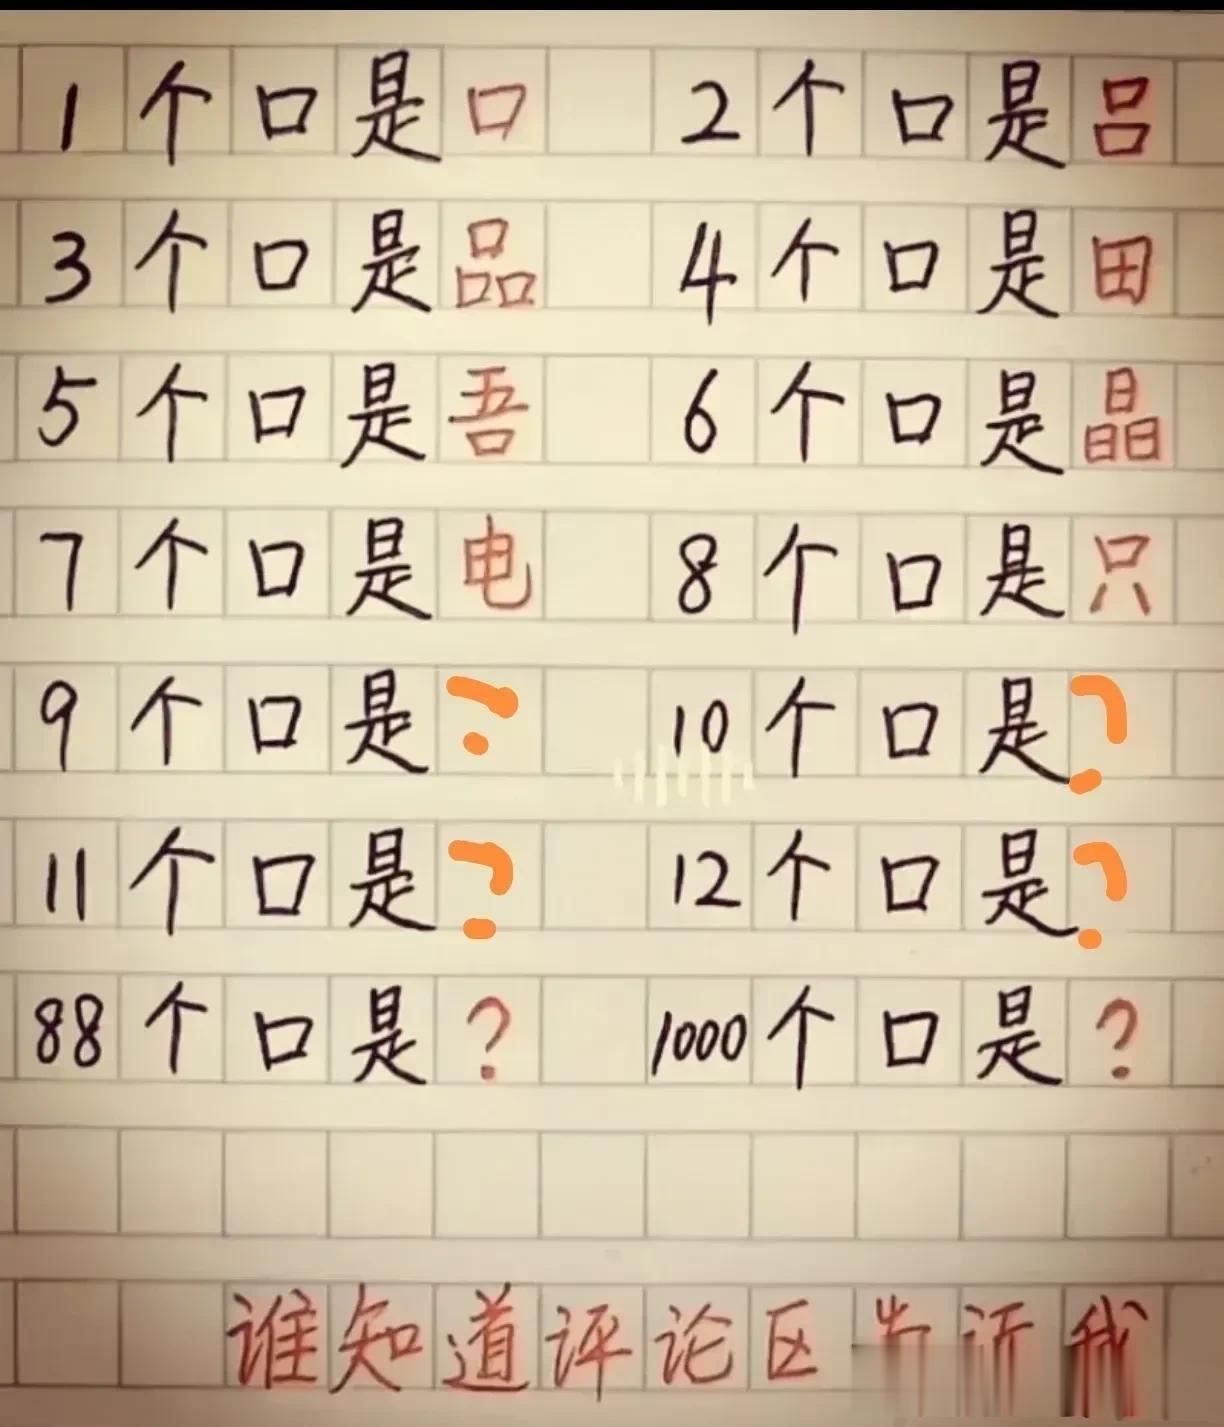 1个口是口 2个口是吕
3个口是品 4个口是田
5个口是吾 6个口是晶
7个口是电 8个口是只
9个口是? 10个口是?
11个口是? 12个口是?
88个口是? 1000个口是?
谁知道评论区告诉我